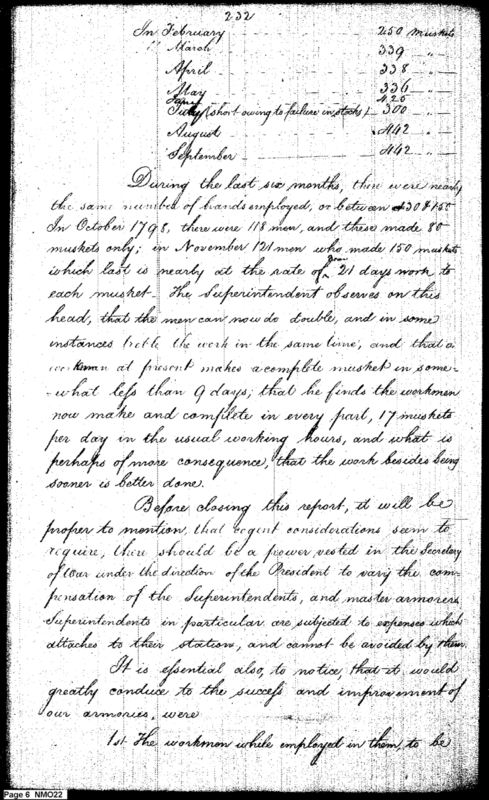 232
In February 250 muskets
" March 339 "
April 338 "
May 336 "
June 425
July (short owing to failure in stocks) 300 "
August 442 "
September 442 "
During the last six months, there were nearly
the same number of hands employed, or between 130 & 150
In October 1798, there were 118 men, and these made 80
muskets only; in November 121 men who made 150 muskets
which last is nearly at the rate of 21 days work to
each musket. The Superintendent observes on this
head, that the men can now do double, and in some
instances treble the work in the same time, and that a
workman at present makes a complete musket in some-
-what less than 9 days; that he finds the workmen
now make and complete in every part, 17 muskets
per day in the usual working hours, and what is
perhaps of more consequence, that the work besides being
sooner is better done.
Before closing this report, it will be
proper to mention, that urgent considerations seem to
require, there should be a power vested in the Secretary
of War under the direction of the President to vary the com-
pensation of the Superintendents, and master armorers
Superintendents in particular are subjected to expenses which
attaches to their station, and cannot be avoided by them.
It is essential also, to notice, that it would
greatly conduce to the success and improvement of
our armories, were
1st The workmen while employed in them, to be
Page 6 NMO22